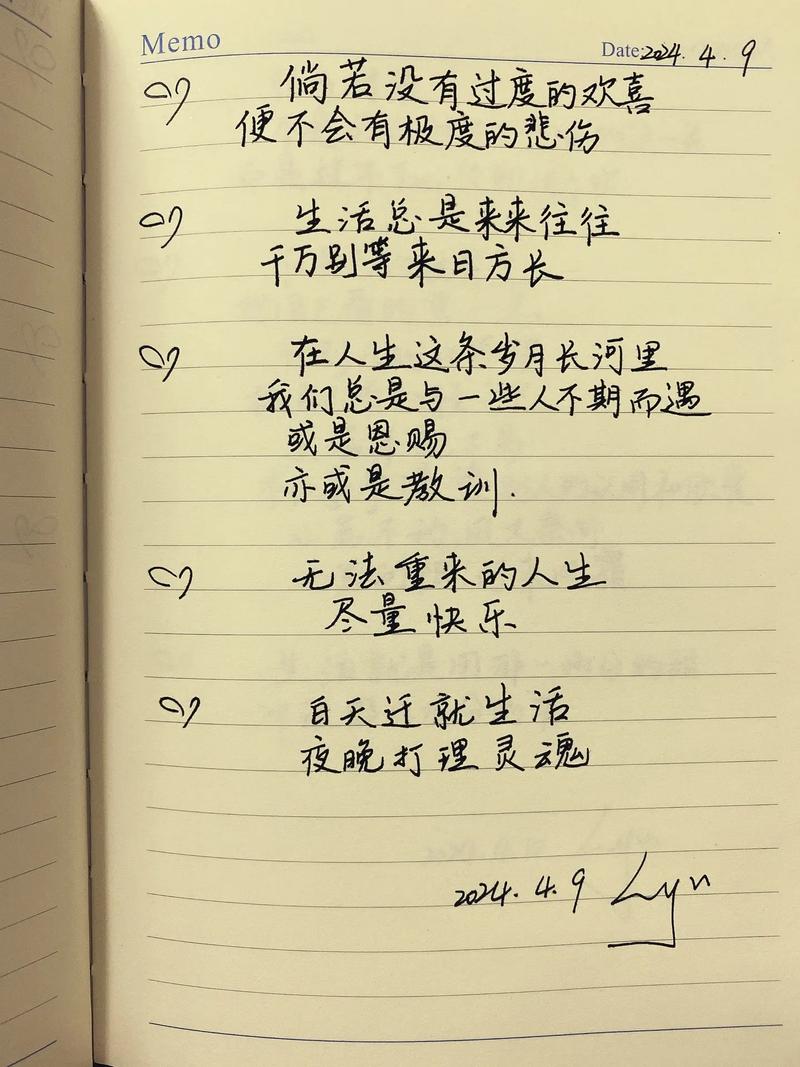 Memo
Date: 2024. 4. 9
倘若没有过度的欢喜
便不会有极度的悲伤
生活总是来来往往
千万别等来日方长
在人生这条岁月长河里
我们总是与一些人不期而遇
或是恩赐
亦或是教训.
无法重来的人生
尽量快乐
白天迁就生活
夜晚打理灵魂
2024. 4. 9 Lyn